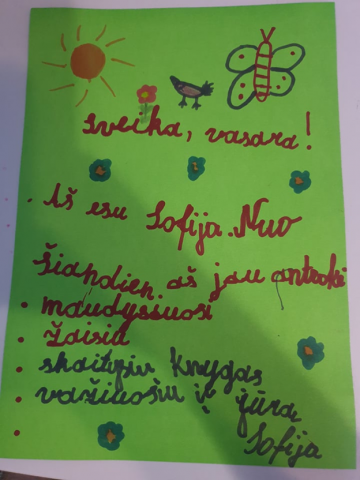 sveika, vasara!
Aš esu Sofija. Nuo
šiandien aš jau antrokė
maudysiuosi
žaisiu
skaitysiu knygas
važiuosiu į jūrą
Sofija